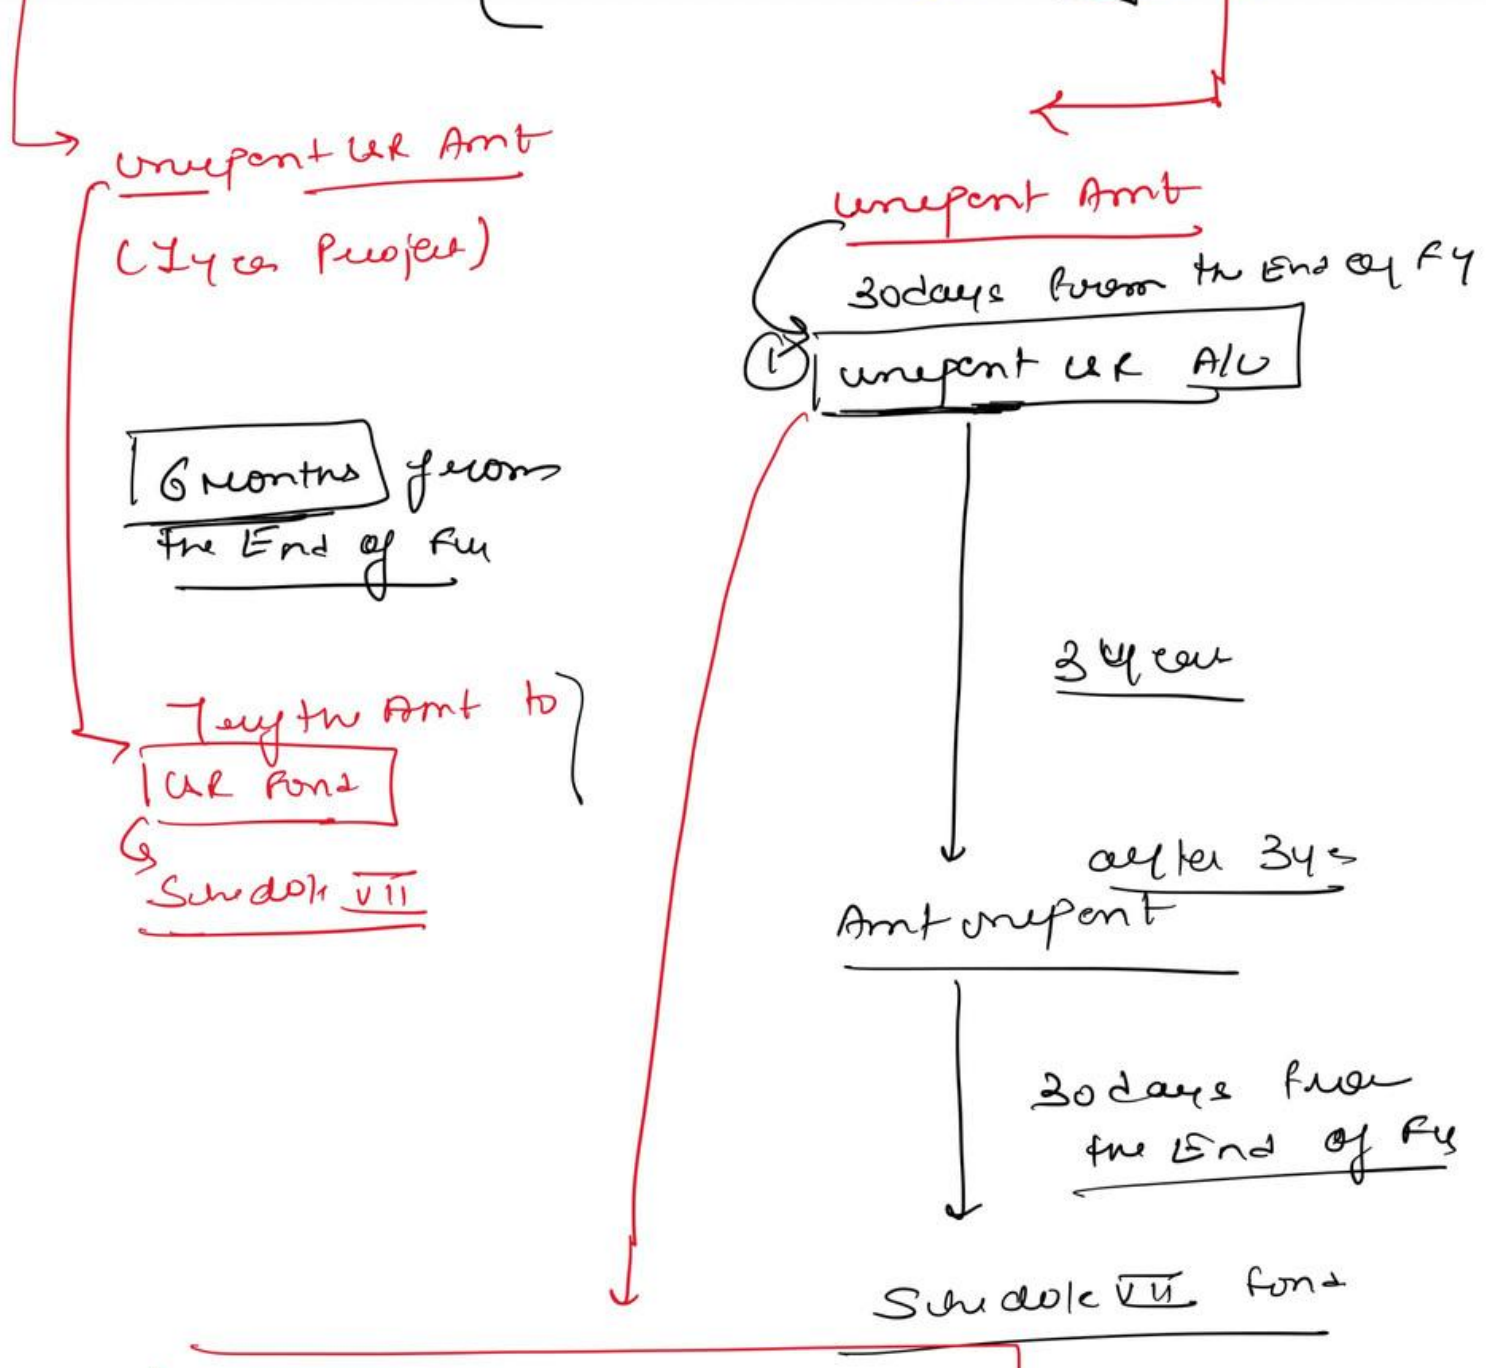 unspent CSR Amt
(1 year Project)
6 months from
the End of Fy
Trf the Amt to
CSR Fund
Schedule VII
unspent Amt
30days from the End of Fy
1 unspent CSR A/c
3 year
after 3 ys
Amt unspent
30 days from
the End of Fy
Schedule VII fund